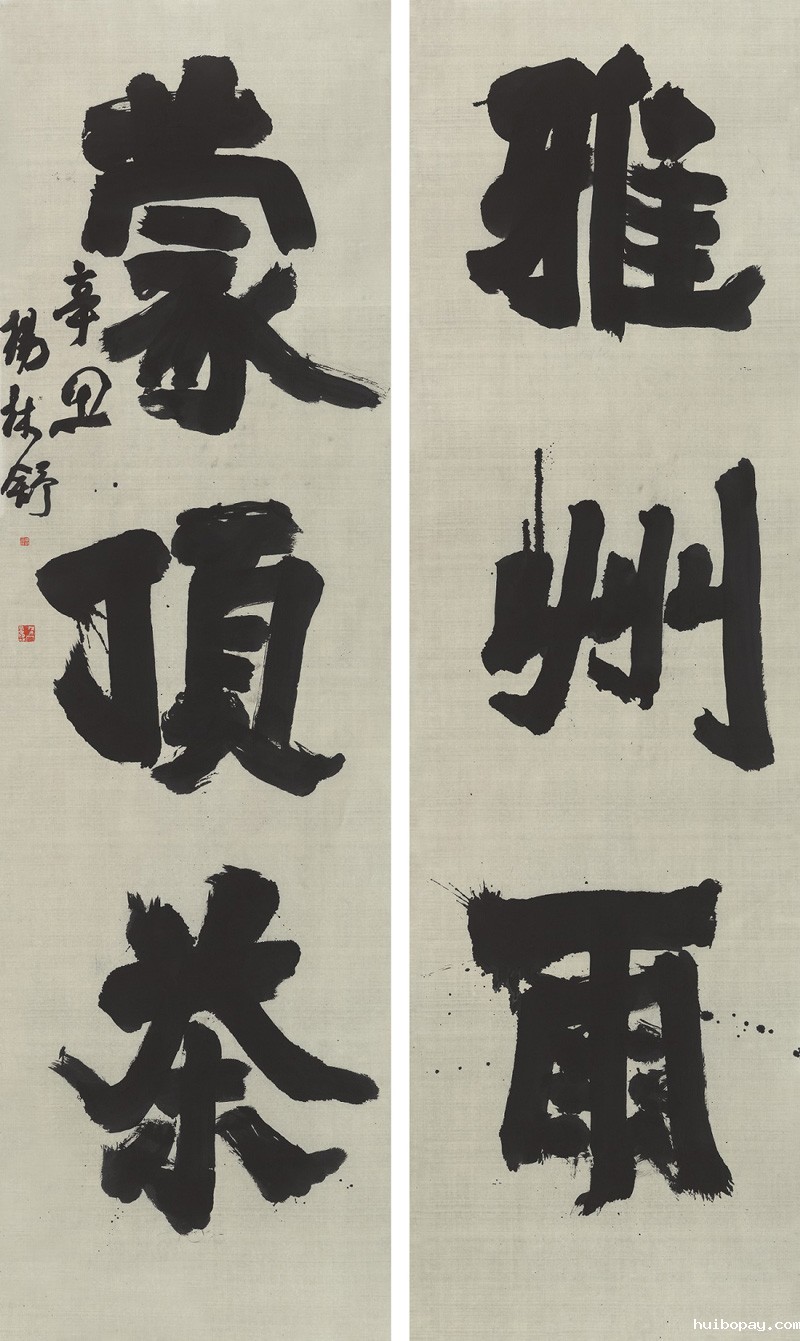 雅州雨
蒙頂茶
辛丑
楊林舒
huibopay.com